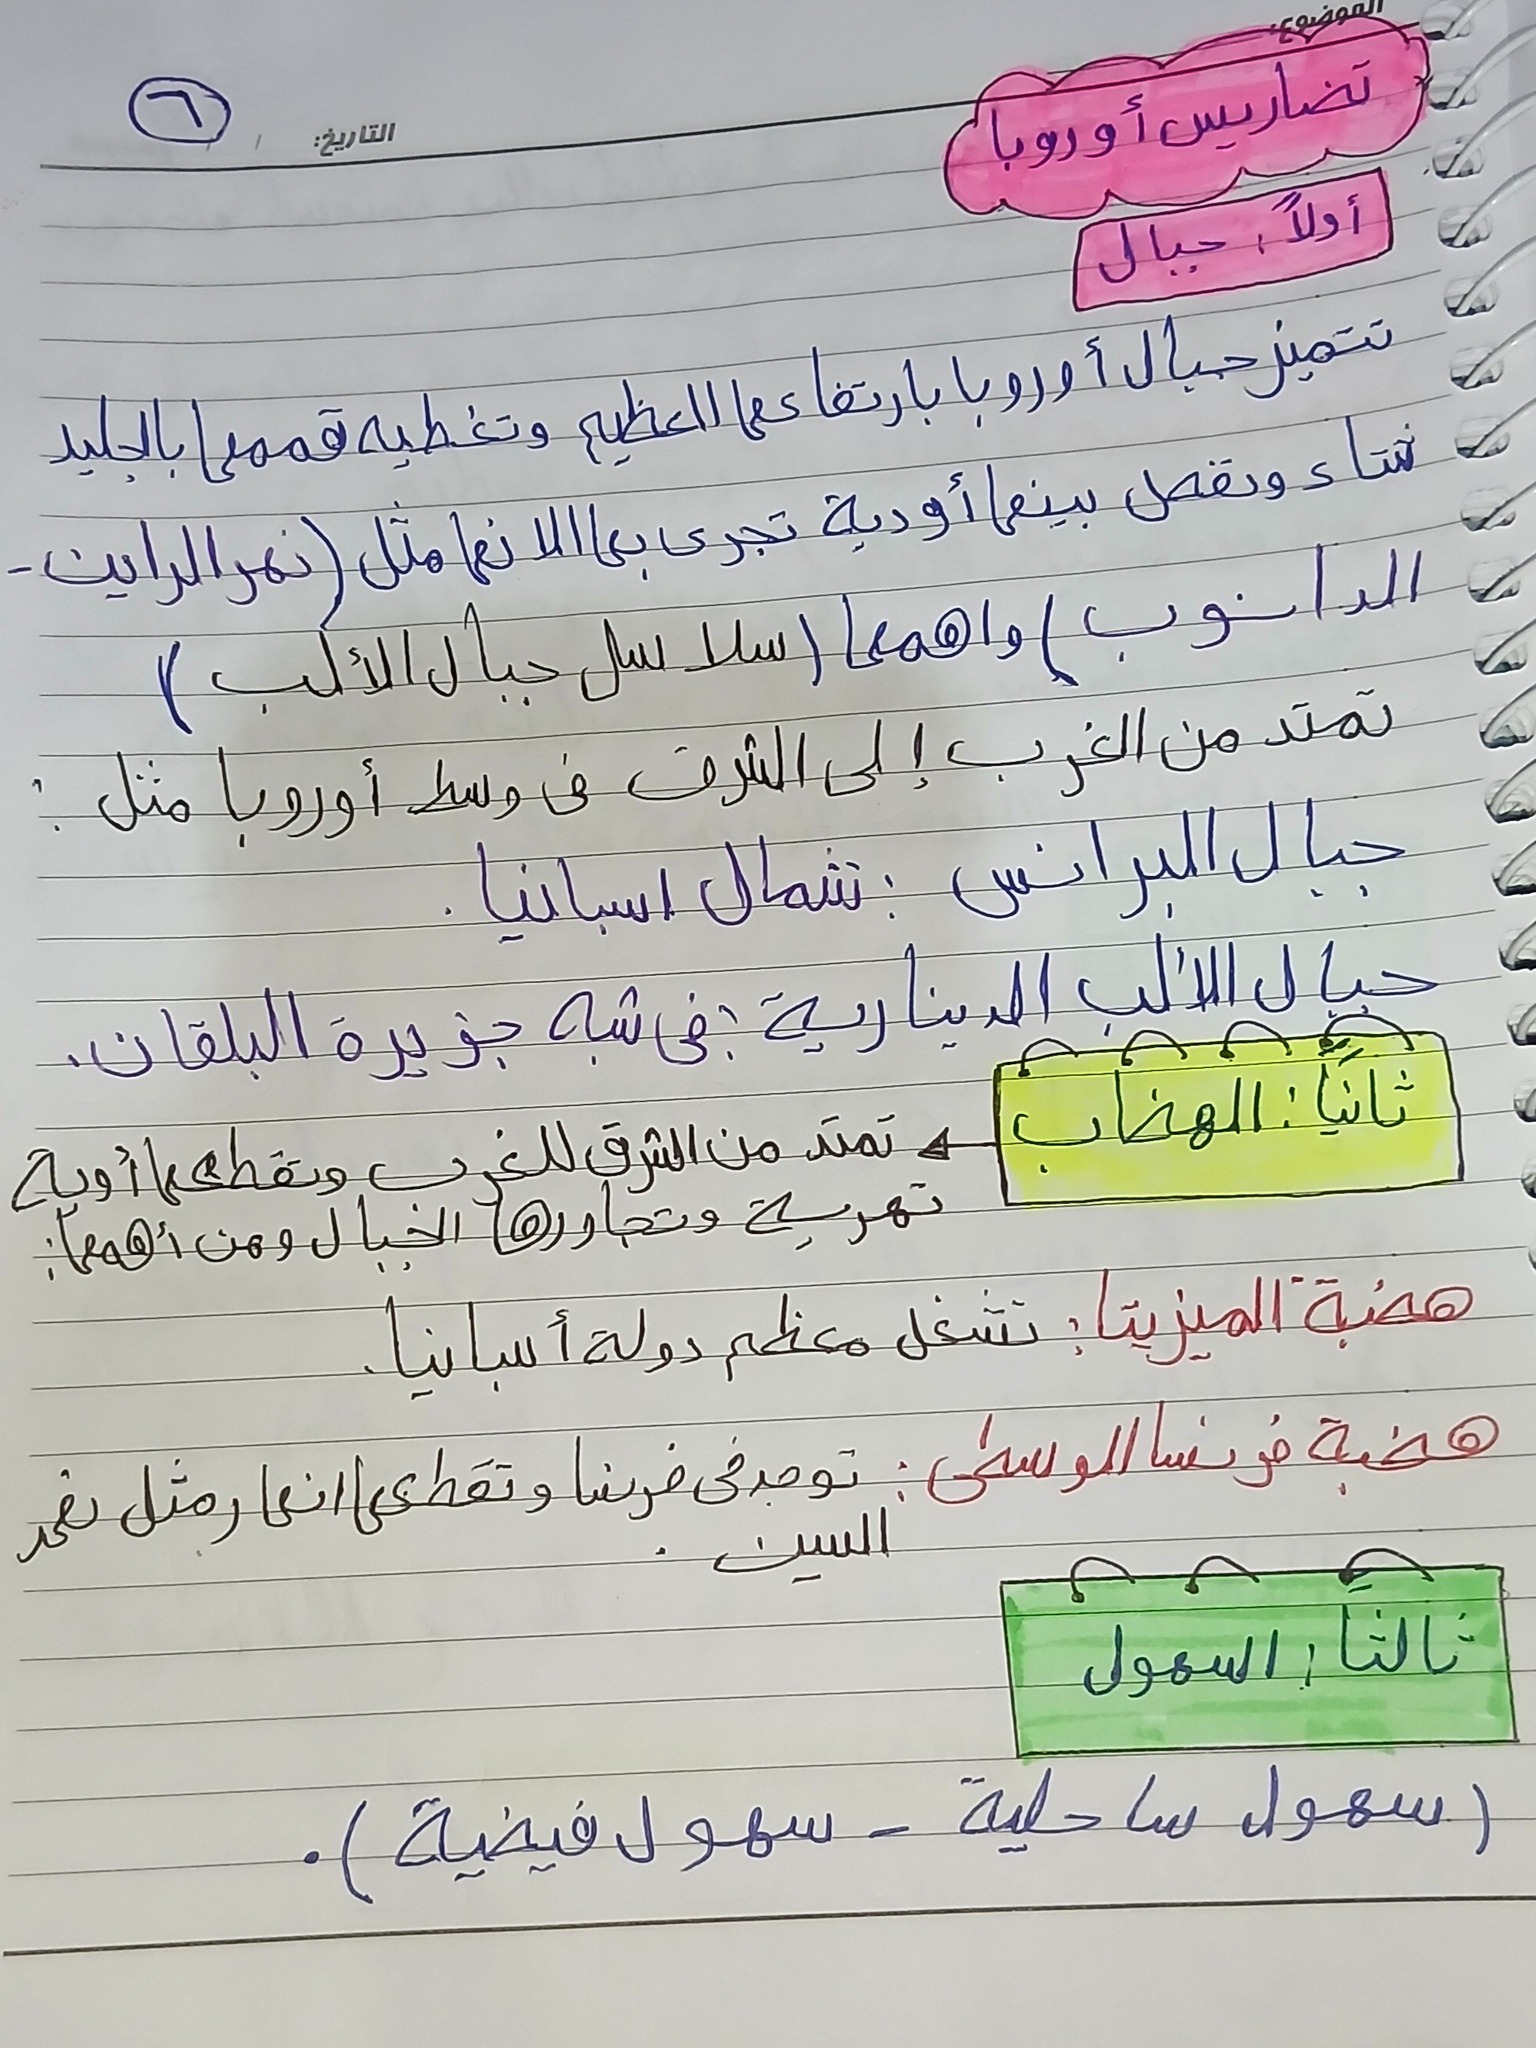 الموضوع:
التاريخ: / /
٦
تضاريس أوروبا
أولاً: جبال
تتميز جبال أوروبا بارتفاعها العظيم وتغطيه قممها بالجليد
شتاء وتفصل بينها أودية تجرى بها الانها مثل (نهر الراين -
الدانوب) واهمها (سلاسل جبال الألب)
تمتد من الغرب إلى الشرق فى وسط أوروبا مثل :
جبال البرانس : شمال اسبانيا .
جبال الألب الدينارية : فى شبه جزيرة البلقان .
ثانيًا : الهضاب
تمتد من الشرق للغرب وتقطعها أودية
نهرية وتجاورها الجبال ومن أهمها :
هضبة الميزيتا : تشغل معظم دولة أسبانيا .
هضبة فرنسا الوسطى : توجد فى فرنسا وتقطعها انهار مثل نهر
السين .
ثالثاً : السهول
(سهول ساحلية - سهول فيضية) .